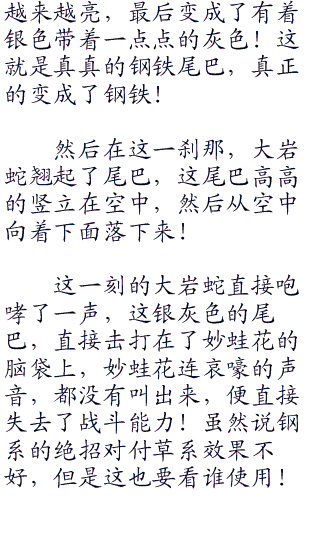 越来越亮，最后变成了有着
银色带着一点点的灰色！这
就是真真的钢铁尾巴，真正
的变成了钢铁！
然后在这一刹那，大岩
蛇翘起了尾巴，这尾巴高高
的竖立在空中，然后从空中
向着下面落下来！
这一刻的大岩蛇直接咆
哮了一声，这银灰色的尾
巴，直接去打在了妙蛙花的
脑袋上，妙蛙花连哀嚎的声
音，都没有叫出来，便直接
失去了战斗能力！虽然说钢
系的绝招对付草系效果不
好，但是这也要看谁使用！